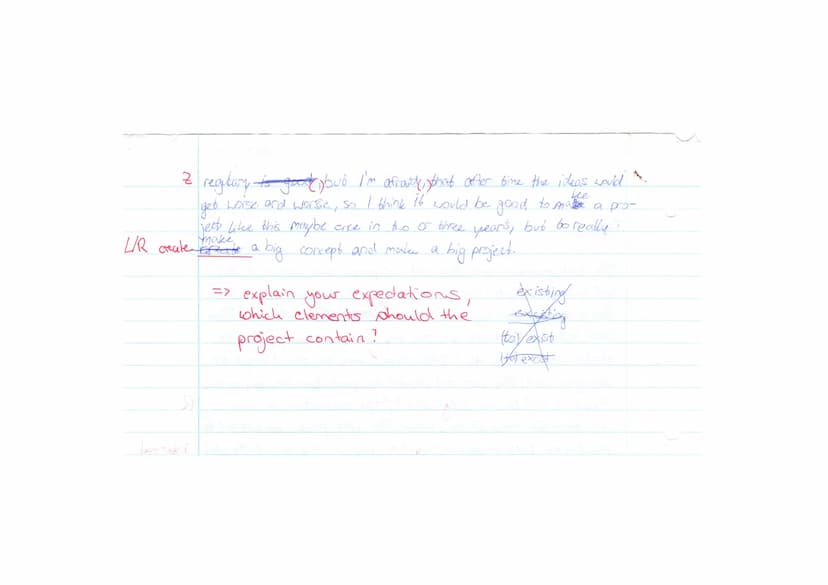 Z regulary is good(,) but I'm afraid(,) that after time the ideas would
get worse and worse, so I think it would be good to make a pro-
ject like this maybe once in two or three years, but to really
make
L/R create a big concept and make a big project.
=> explain your expectations,
which elements should the
project contain?
existing
(to) exist
(to) exist